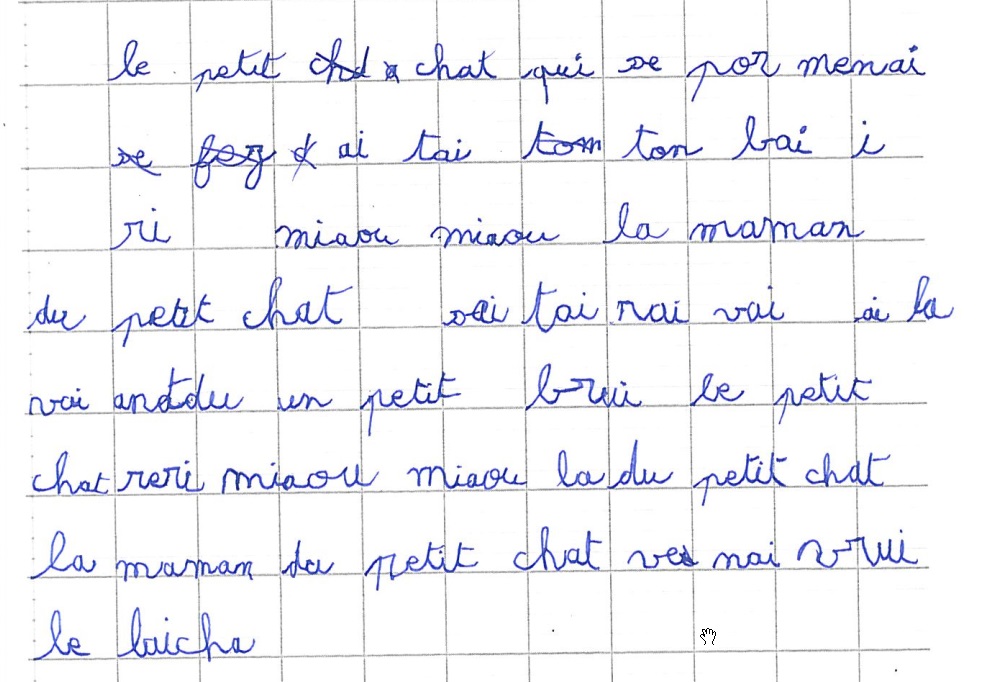 le petit chat qui se por menai
se ai tai ton bai i
ri miaou miaou la maman
du petit chat sai tai rai vai ai la
vai andtdu un petit brui le petit
chat reri miaou miaou la du petit chat
la maman du petit chat ves nai vrui
le laicha